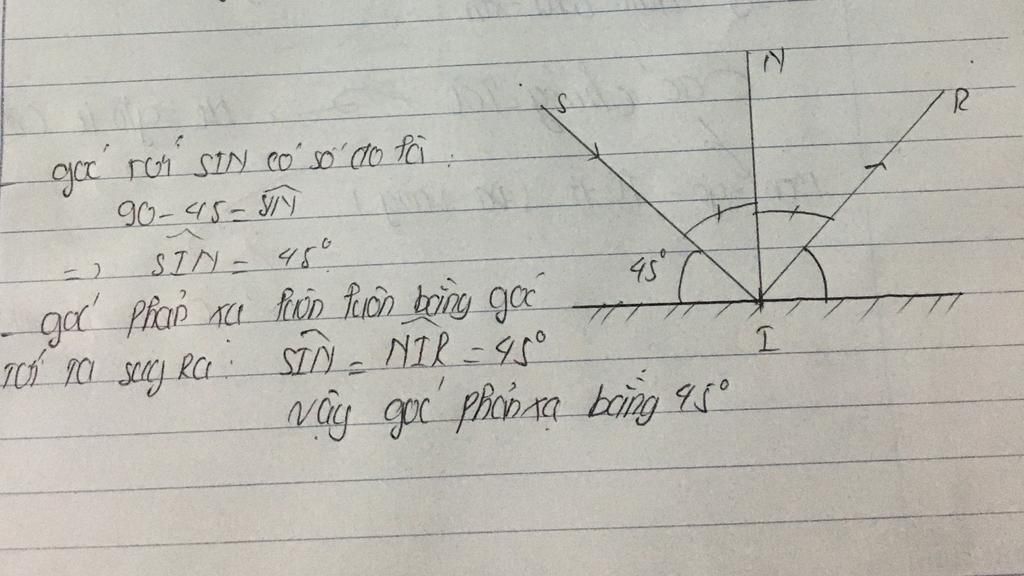 góc tới SIN có số đo là :
90 - 45 = SIN
=> SIN = 45°
- góc phản xạ luôn luôn bằng góc
tới ta suy Ra : SIN = NIR = 45°
vậy góc phản xạ bằng 45°
S
N
R
45°
I